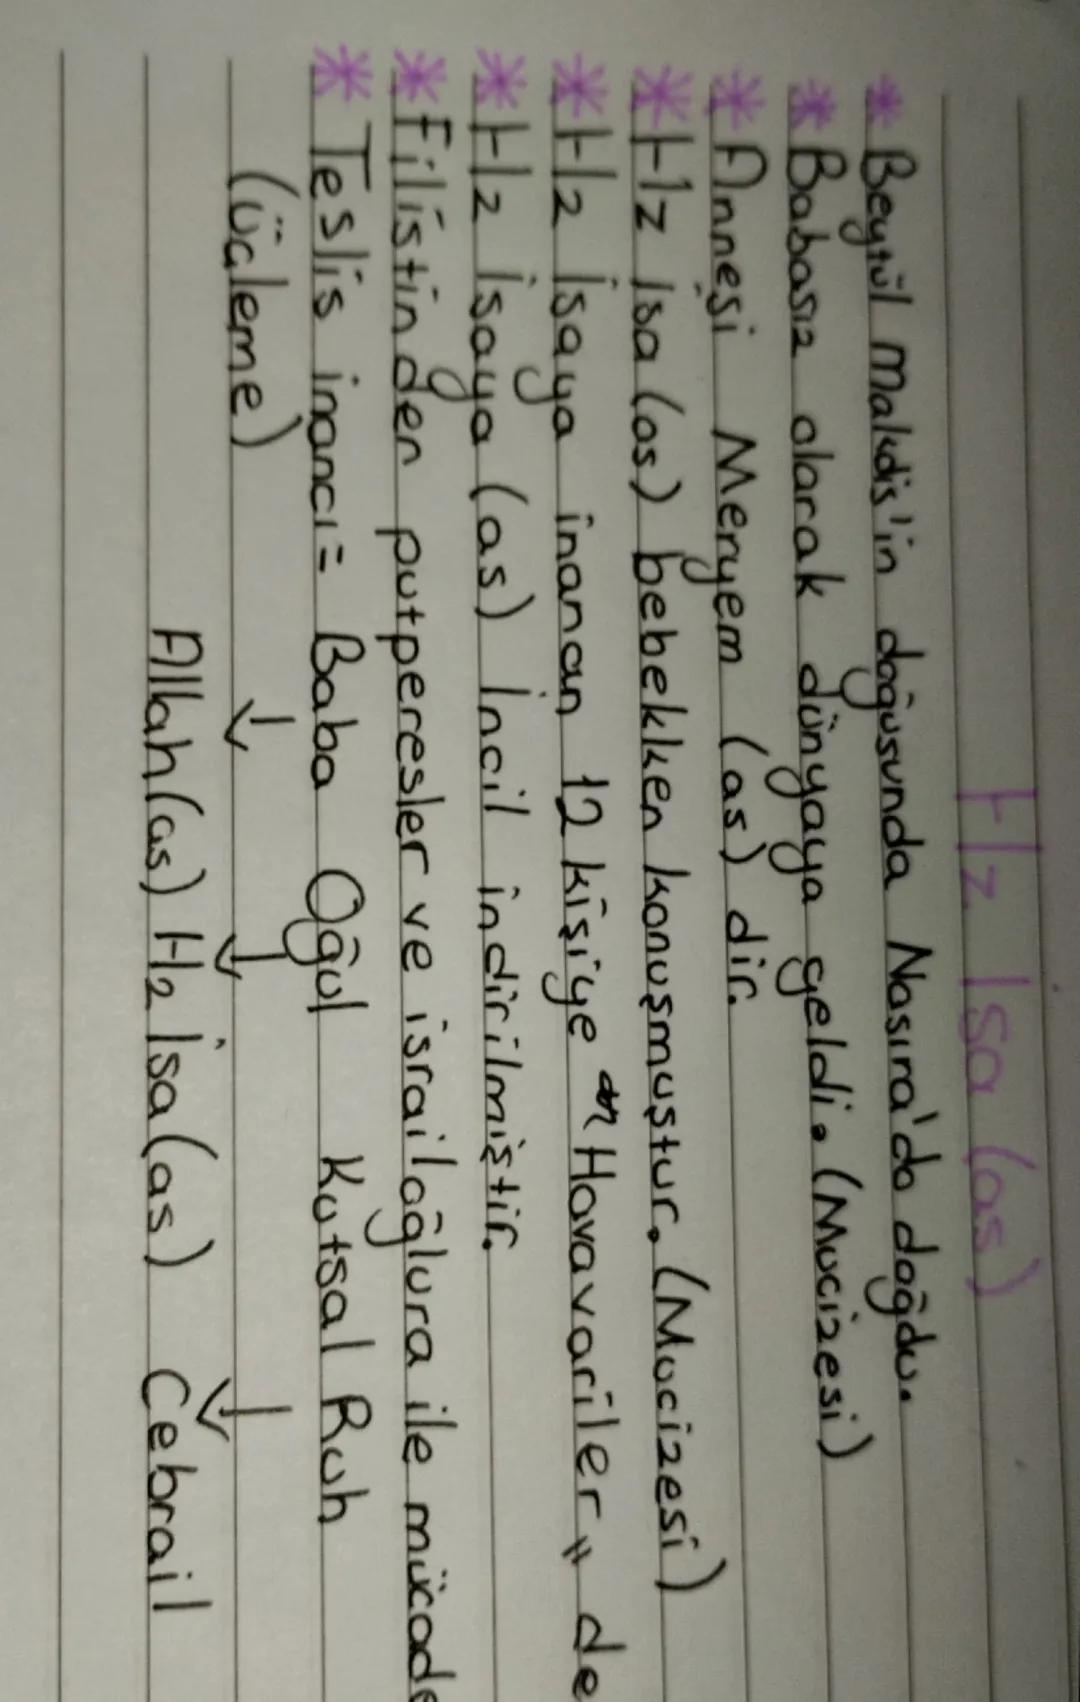 Hz. İsa (as)
* Beytül Makdis'in doğusunda Nasıra'da doğdu.
* Babasız olarak dünyaya geldi. (Mucizesi)
* Annesi Meryem (as) dir.
* Hz İsa (as) bebekken konuşmuştur. (Mucizesi)
* Hz İsaya inanan 12 kişiye "Havavariler" de
* Hz İsaya (as) İncil indirilmiştir.
* Filistinden putperesler ve israiloğlura ile mücade
* Teslis inancı = Baba Oğul Kutsal Ruh
(üçleme) ↓ ↓ ↓
Allah (as) Hz İsa (as) Cebrail